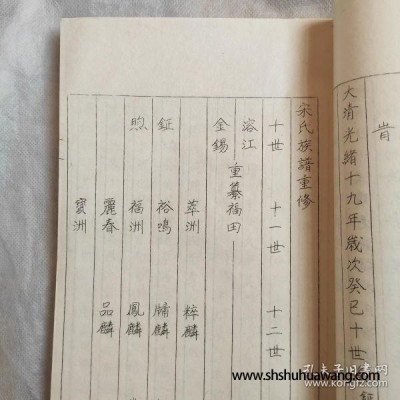 大清光緒十九年歲次癸巳十世
鉦
肯
宋氏族譜重修
十世 十一世 十二世
溶江 重纂福田
金錫
萃洲 粹麟
鉦 裕鳴 牗麟
煦 福洲 鳳麟
麗春 品麟
寶洲
www.shshuhuawang.com
孔夫子旧书网
www.kongfz.com